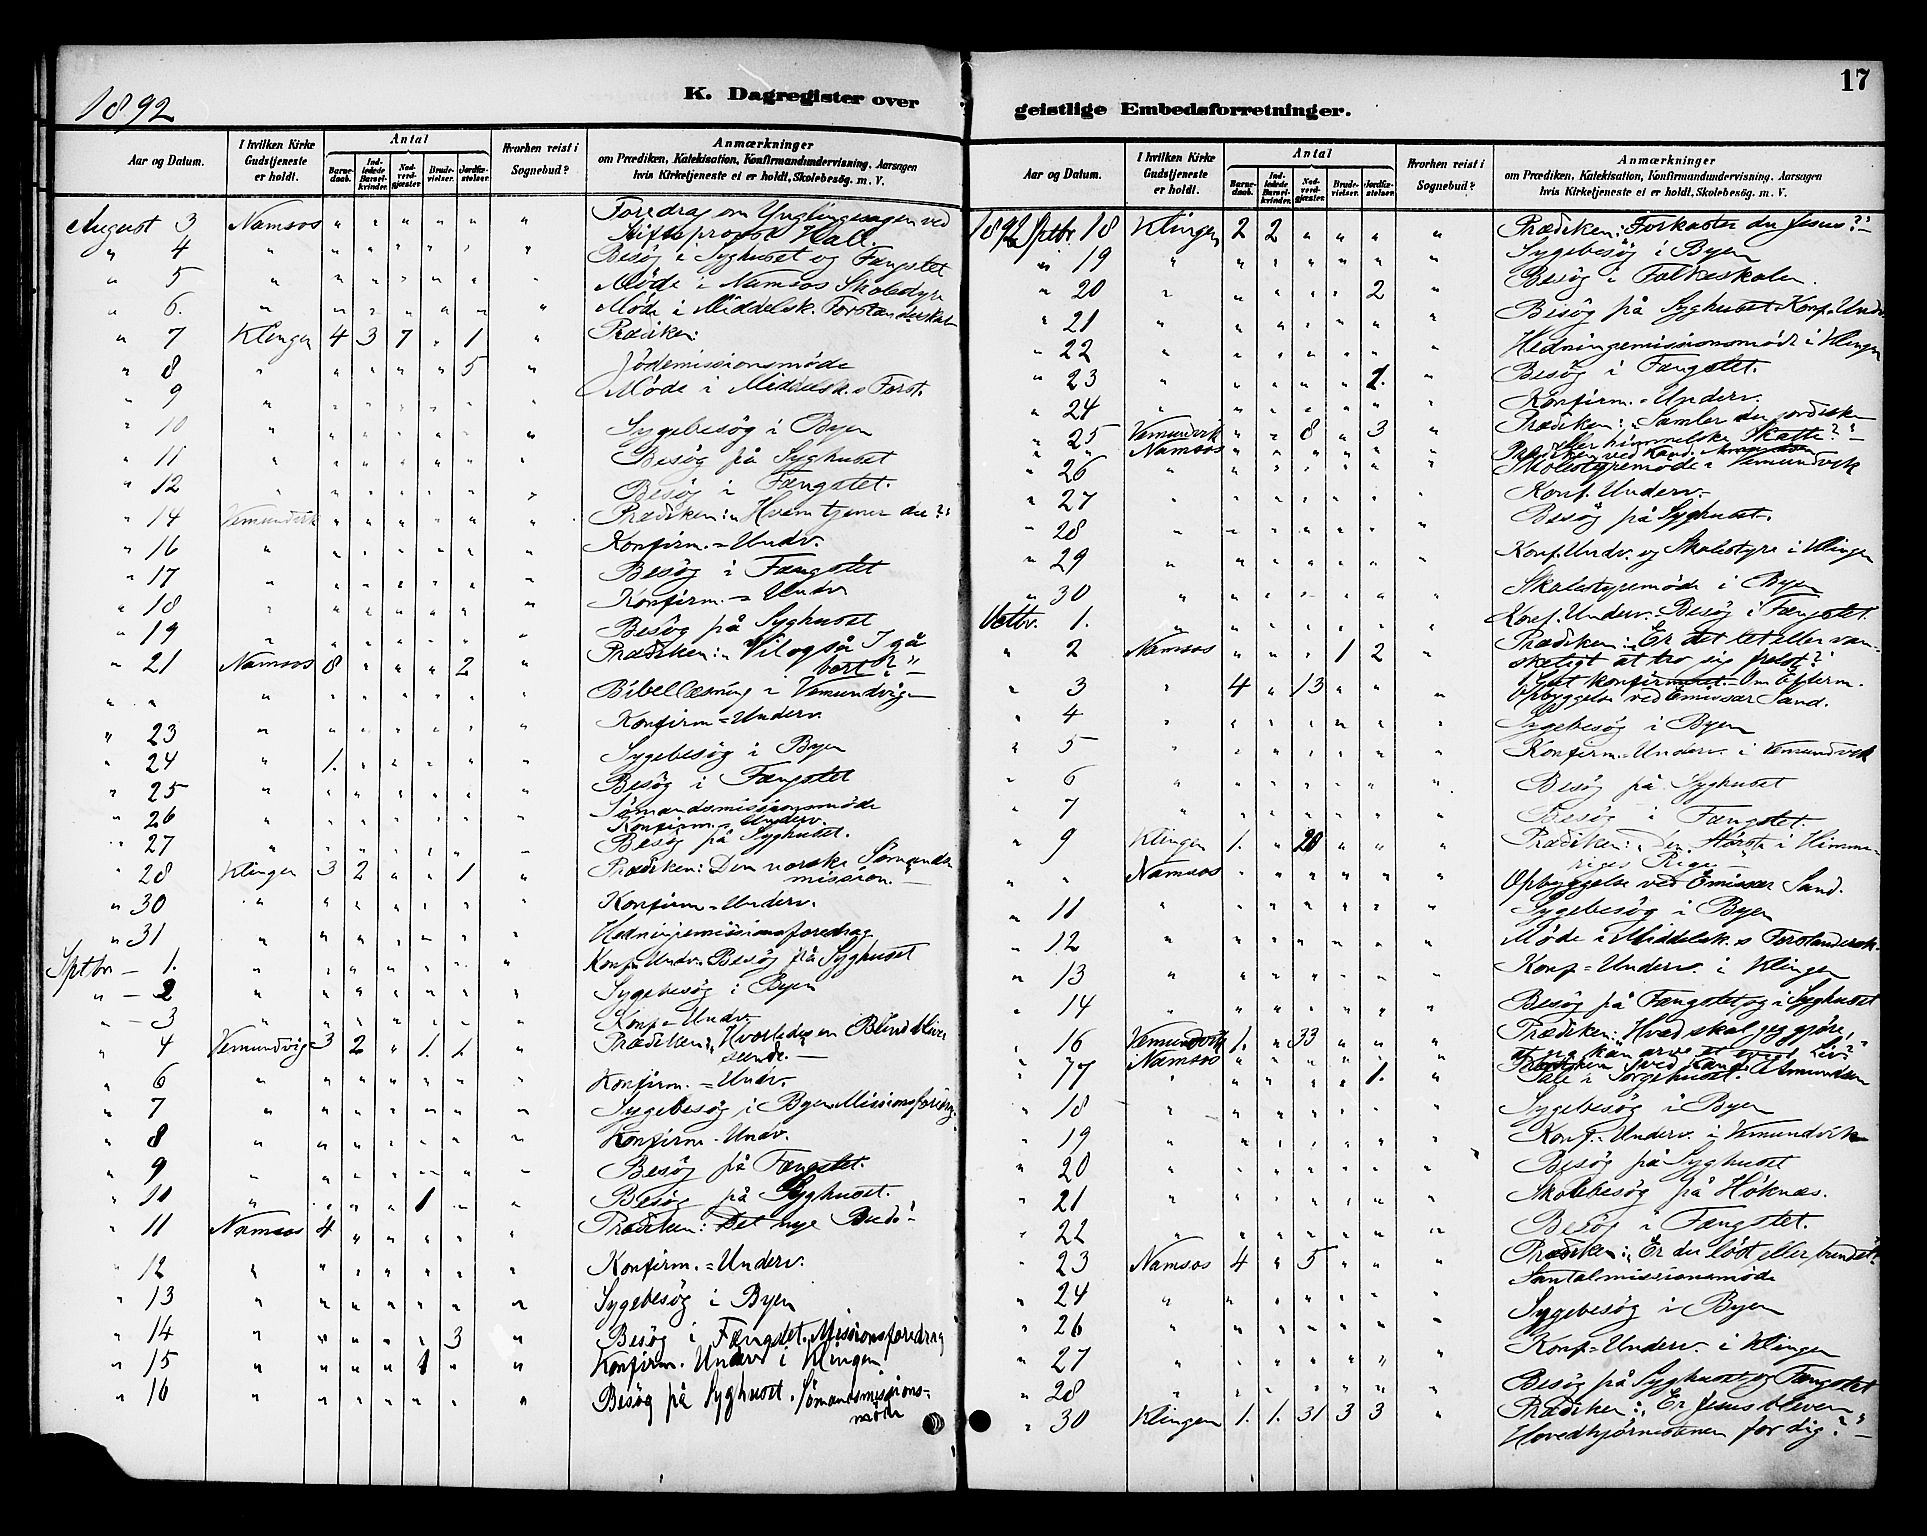 1892
K. Dagregister over
Aar og Datum. I hvilken Kirke Gudstjeneste er holdt. Antal Barnedaab. Indledede Barselkvinder. Nadverdgjæster. Brudevielser. Jordfæstelser. Hvorhen reist i Sognebud? Anmærkninger om Prædiken, Katekisation, Konfirmandundervisning, Aarsagen hvis Kirketjeneste ei er holdt, Skolebesøg. m. V.
August 3 Namsos " " " " " " Foredrag om Ynglingesagen ved
Stiftsprovst Hall.
" 4 " " " " " " " Besøg i Syghuset og Fængslet
" 5 " " " " " " " Møde i Namsos Skolestyre
" 6. " " " " " " " Møde i Middelsk. Forstanderskab
" 7 Klingen 4 3 7 " 1 " Prædiken:
" 8 " " " " " 5 " Jødemissionsmøde
" 9 " " " " " " " Møde i Middelsk. s Forst.
" 10 " " " " " " " Sygebesøg i Byen
" 11 " " " " " " " Besøg på Syghuset
" 12 " " " " " " " Besøg i Fængslet.
" 14 Vemundvik " " " " " " Prædiken: "Hvem tjener du?"
" 16 " " " " " " " Konfirm. = Undv.
" 17 " " " " " " " Besøg i Fængslet
" 18 " " " " " " " Konfirm. = Undv
" 19 " " " " " " " Besøg på Syghuset
" 21 Namsos 8 " " " 2 " Prædiken: "Vil også I gå
bort?" –
" " " " " " " " " Bibellæsning i Vemundvig –
" 23 " " " " " " " Konfirm = Underv.
" 24 " 1. " " " " " Sygebesøg i Byen
" 25 " " " " " " " Besøg i Fængslet
" 26 " " " " " " " Sømandsmissionsmøde
Konfirm. = Underv.
" 27 " " " " " " " Besøg på Syghuset.
" 28 Klingen 3 2 " " 1 " Prædiken: Den norske Sømands
mission. –
" 30 " " " " " " " Konfirm = Underv.
" 31 " " " " " " " Hedningemissionsforedrag
Sptbr – 1. " " " " " " " Konf. Undv. Besøg på Syghuset
" – 2 " " " " " " " Sygebesøg i Byen
" – 3 " " " " " " " Konf = Undv.
" 4 Vemundvig 3 2 " 1. 1. " Prædiken: "Hvorledes en Blind bliver
seende. –
" 6 " " " " " " " Konfirm. = Undv.
" 7 " " " " " " " Sygebesøg i Byen. Missionsforedrag.
" 8 " " " " " " " Konfirm – Undv.
" 9 " " " " " " " Besøg på Fængslet.
" 10 " " " " 1 " " Besøg på Syghuset.
" 11 Namsos 4 " " " " " Prædiken: Det nye Bud.
" 12 " " " " " " " Konfirm. = Underv.
" 13 " " " " " " " Sygebesøg i Byen
" 14 " " " " " 3 " Besøg i Fængslet. Missionsforedrag
" 15 " " " " 1 " " Konfirm. Underv i Klingen
" 16 " " " " " " " Besøg på Syghuset. Sømandsmissions=
møde
17
geistlige Embedsforretninger.
Aar og Datum. I hvilken Kirke Gudstjeneste er holdt. Antal Barnedaab. Indledede Barselkvinder. Nadverdgjæster. Brudevielser. Jordfæstelser. Hvorhen reist i Sognebud? Anmærkninger om Prædiken, Katekisation, Konfirmandundervisning, Aarsagen hvis Kirketjeneste ei er holdt, Skolebesøg. m. V.
1892 Sptbr. 18 Klingen 2 2 " " " " Prædiken: Forkaster du Jesus?" –
" 19 " " " " " " " Sygebesøg i Byen
" 20 " " " " " 2 " Besøg i Folkeskolen.
" 21 " " " " " " " Besøg på Syghuset. Konf. Undv.
" 22 " " " " " " " Hedningemissionsmøde i Klingen
" 23 " " " " " 1. " Besøg i Fængslet.
" 24 " " " " " " " Konfirm. = Underv.
" 25 Vemundvik " " 8 " 3 " Prædiken: "Samler du jordiske
eller himmelske Skatte?" –
" " Namsos Prædiken ved Kand. Amundsen
" 26 " " " " " " " Skolestyremøde i Vemundvik
" 27 " " " " " " " Konf. Underv.
" 28 " " " " " " " Besøg på Syghuset.
" 29 " " " " " " " Konf. Undv. og Skolestyre i Klingen
" 30 " " " " " " " Skolestyremøde i Byen
Octbr. 1. " " " " " " " Konf. Underv. Besøg i Fængslet.
" 2 Namsos " " " 1 2 " Prædiken: "Er det let eller van-
skeligt at tro sig frelst?"
" 3 " 4 " 13 " " " konfirmeret. – Om Efterm.
Opbyggelse ved Emissær Sand.
" 4 " " " " " " " Sygebesøg i Byen
" 5 " " " " " " " Konfirm = Underv. i Vemundvik
" 6 " " " " " " " Besøg på Syghuset
" 7 " " " " " " " Besøg i Fængslet.
" 9 Klingen 1. " 20 " " " Prædiken: "Den Største i Himme-
riges Rige" –
" " Namsos " " " " " " Opbyggelse ved Emissær Sand.
" 11 " " " " " " " Sygebesøg i Byen
" 12 " " " " " " " Møde i Middelsk. s Forstandersk.
" 13 " " " " " " " Konf = Underv. i Klingen
" 14 " " " " " " " Besøg på Fængslet og i Syghuset
" 16 Vemundvik 1. " 33 " " " Prædiken: "Hvad skal jeg gjøre,
at jeg kan arve et evigt Liv?"
" " Namsos " " " " " " Prædiken ved Kand. Amundsen
" 17 " " " " " 1. " Tale i Sørgehuset.
" 18 " " " " " " " Sygebesøg i Byen
" 19 " " " " " " " Konf. – Underv. i Vemundvik
" 20 " " " " " " " Besøg på Syghuset
" 21 " " " " " " " Skolebesøg på Höknæs.
" 22 " " " " " " " Besøg i Fængslet.
" 23 Namsos 4 " 5 " " " Prædiken: "Er du løst eller bundet?"
" 24 " " " " " " " Santalmissionsmøde
" 26 " " " " " " " Sygebesøg i Byen
" 27 " " " " " " " Konf = Underv. i Klingen
" 28 " " " " " " " Besøg på Syghuset og Fængslet
" 30 Klingen 1. 1. 31 3 3 " Prædiken: "Er Jesus bleven
Hovedhjørnestenen for dig?" –